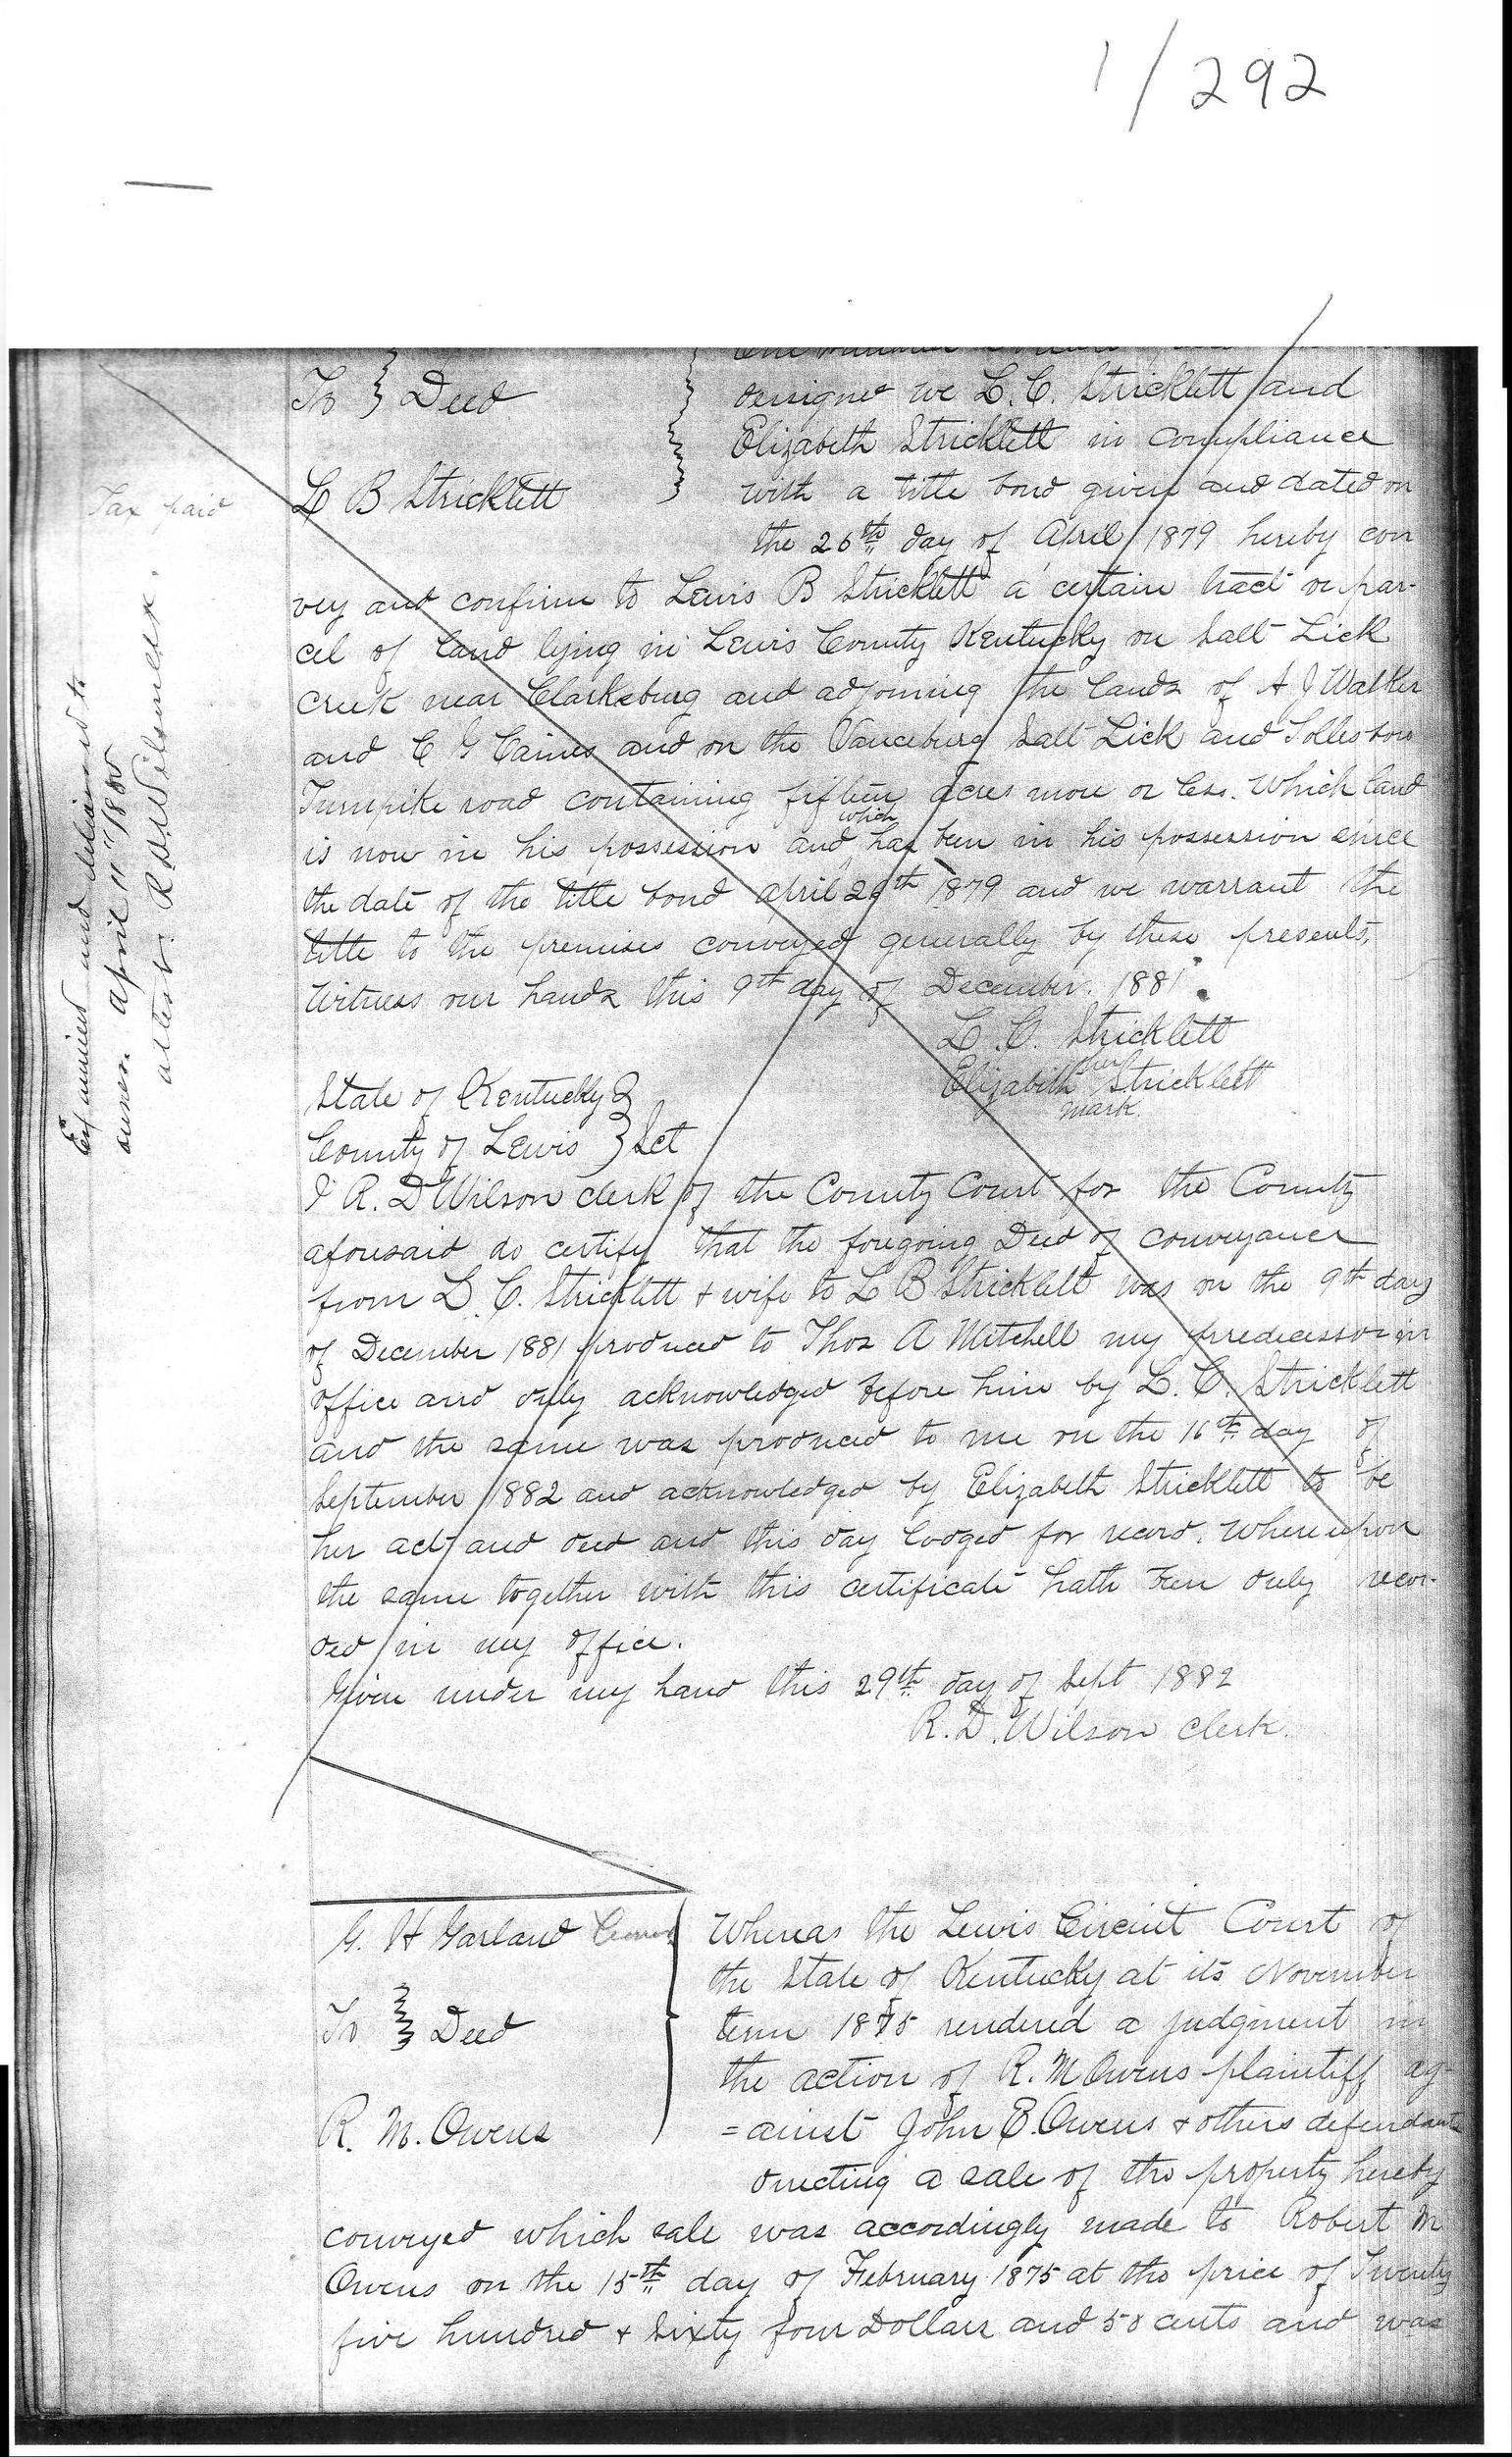 1/292
To } Deed
L B Stricklett
Tax paid
Examined and delivered to
owner April 11"
attest: R. D. Wilson
One hundred
dersigned we L. C. Stricklett and
Elizabeth Stricklett in compliance
with a title bond given and dated on
the 26th day of April 1879 hereby con
vey and confirm to Lewis B Stricklett a certain tract or par-
cel of land lying in Lewis County Kentucky on Salt Lick
creek near Clarksburg and adjoining the lands of A J Walker
and C G Caines and on the Vanceburg Salt Lick and Tollesboro
Turnpike road containing fifteen acres more or less. Which land
is now in his possession and which has been in his possession since
the date of the title bond April 26th 1879 and we warrant the
title to the premises conveyed generally by these presents.
Witness our hands this 9th day of December. 1881.
L. C. Stricklett
Elizabeth her Stricklett
mark.
State of Kentucky }
County of Lewis } Sct
I R. D Wilson clerk of the County Court for the County
aforesaid do certify that the foregoing Deed of conveyance
from L. C. Stricklett + wife to L B Stricklett was on the 9th day
of December 1881 produced to Thos A Mitchell my predecessor in
office and duly acknowledged before him by L. C. Stricklett
and the same was produced to me on the 16th day of
September 1882 and acknowledged by Elizabeth Stricklett to be
her act and deed and this day lodged for record. Whereupon
the same together with this certificate hath been duly recor-
ded in my office.
Given under my hand this 29th day of Sept 1882
R. D. Wilson clerk.
G. H Garland Comr
To } Deed
R. M. Owens
Whereas the Lewis Circuit Court of
the State of Kentucky at its November
term 1875 rendered a judgment in
the action of R. M Owens plaintiff ag-
=ainst John E. Owens + others defendants
directing a sale of the property hereby
conveyed which sale was accordingly made to Robert M
Owens on the 15th day of February 1875 at the price of Twenty
five hundred + sixty four Dollars and 50 cents and was